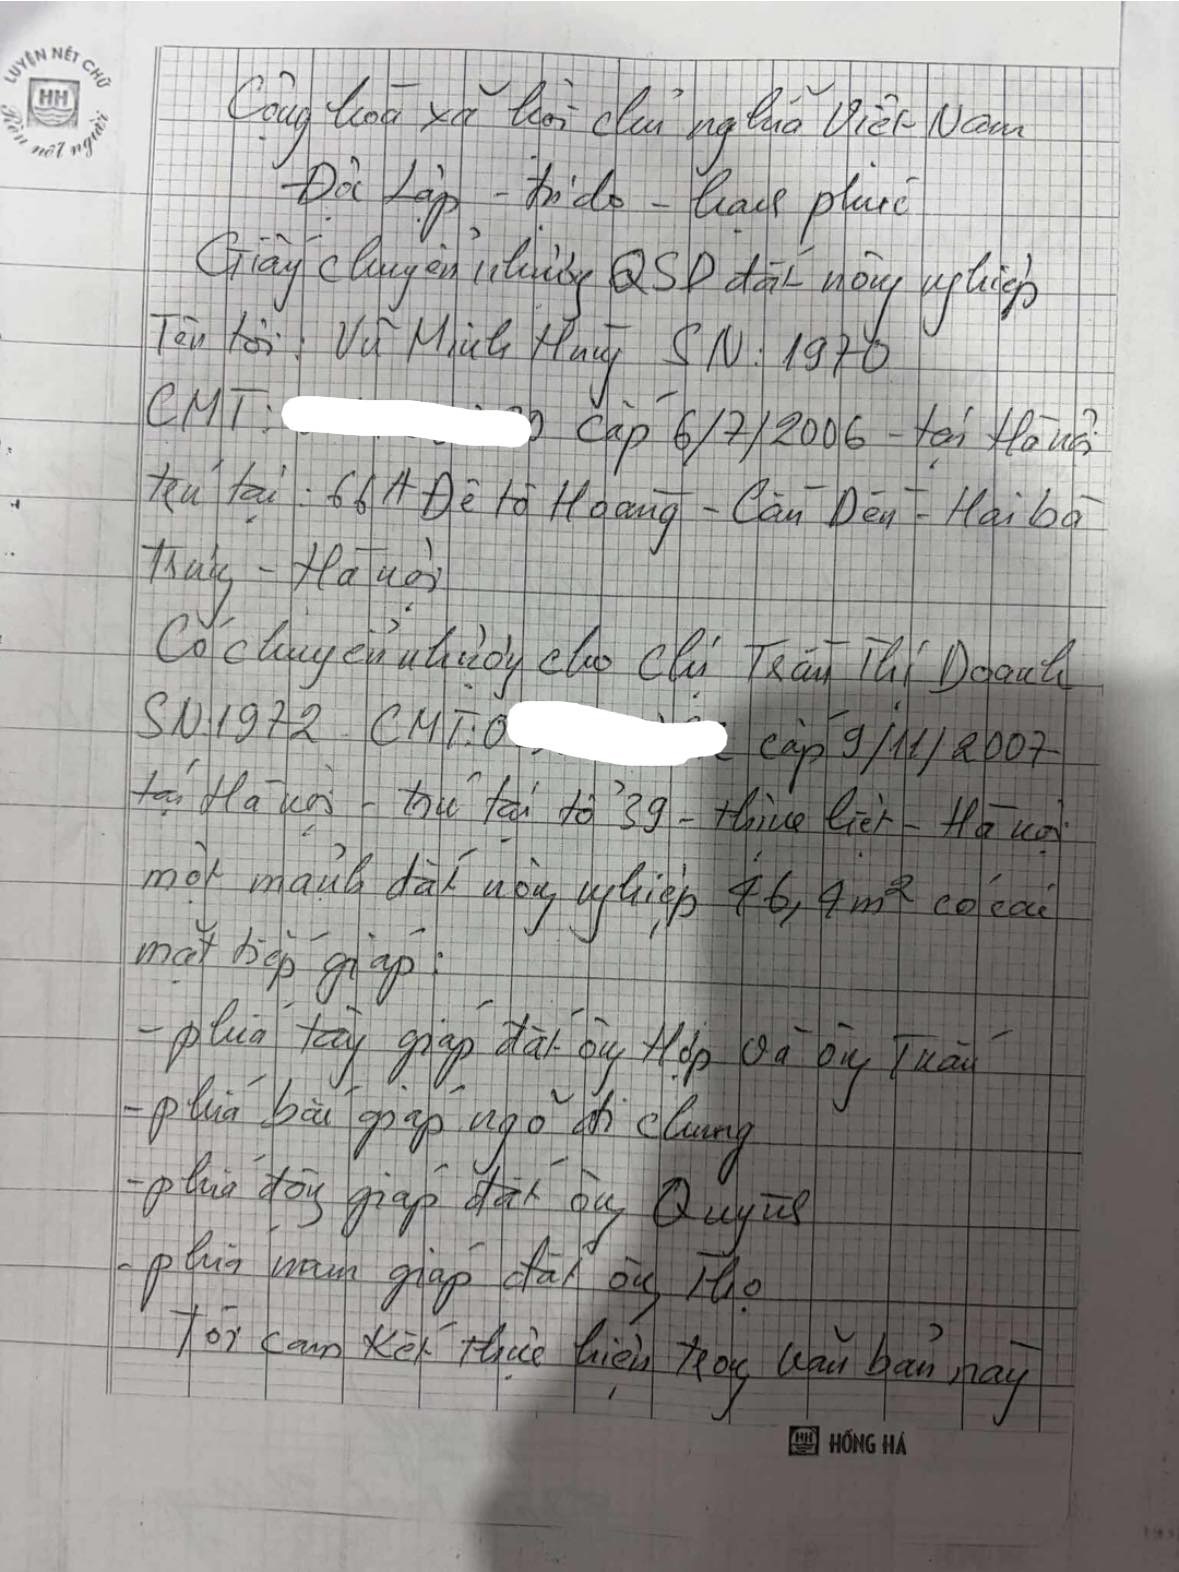 LUYỆN NÉT CHỮ
HH
Rèn nết người
Cộng hoà xã hội chủ nghĩa Việt Nam
Độc Lập - tự do - hạnh phúc
Giấy chuyển nhượng QSD đất nông nghiệp
Tên tôi: Vũ Minh Hùng SN: 1970
CMT: cấp 6/7/2006 - tại Hà nội
trú tại: 66A Đê tô Hoàng - Cầu Dền - Hai bà
trưng - Hà nội
Có chuyển nhượng cho chị Trần Thị Doanh
SN: 1972 CMT: 0 cấp 9/11/2007
tại Hà nội - trú tại tổ 39 - thịnh liệt - Hà nội
một mảnh đất nông nghiệp 46,4m² có các
mặt tiếp giáp:
- phía tây giáp đất ông Hợp và ông Tuấn
- phía bắc giáp ngõ đi chung
- phía đông giáp đất ông Quỳnh
- phía nam giáp đất ông Thọ
Tôi cam kết thực hiện trong văn bản này
HH HỒNG HÀ